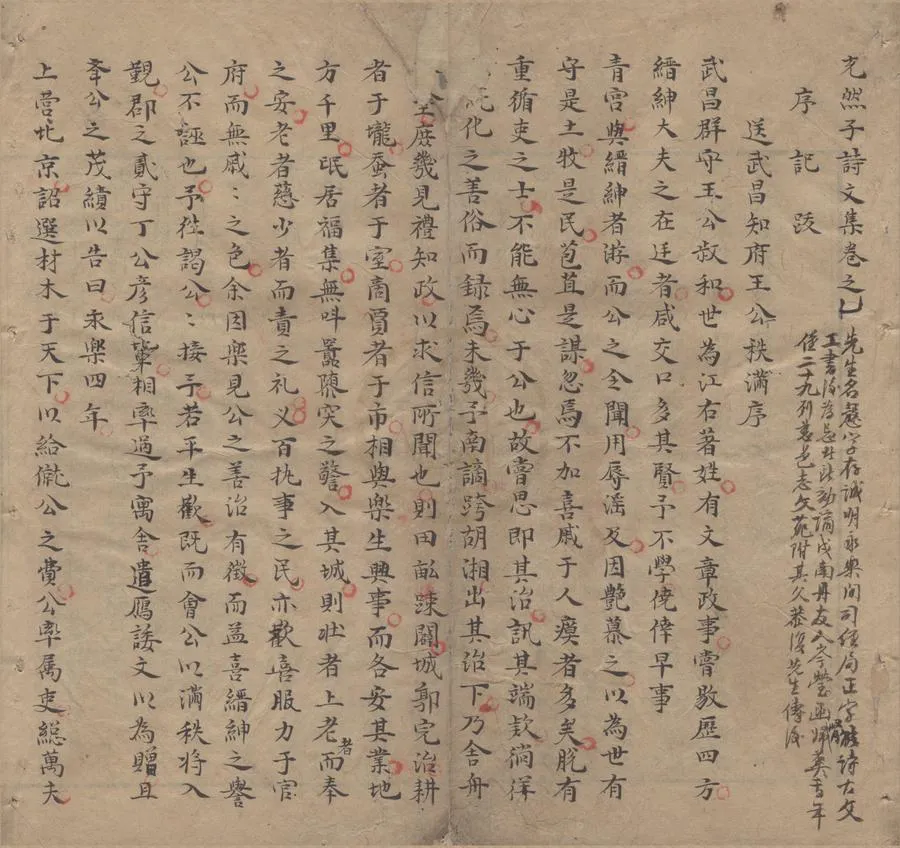 光然子詩文集卷之乙
先生名 字存誠明永樂間司經局正字 詩古文
工書後為 謫戍南丹友人
僅二十九列 邑志文苑附其父 先生傳後
序 記 跋
送武昌知府王公秩滿序
武昌群守王公叔和世為江右著姓有文章政事嘗敭歷四方
縉紳大夫之在廷者咸交口多其賢予不學僥倖早事
青宮與縉紳者游而公之仝聞用辱滛及因艶慕之以為世有
守是土牧是民苞苴是謀忽焉不加喜戚于人瘼者多矣脫有
重循吏之士不能無心于公也故嘗思即其治訊其端欵徜徉
化之善俗而録焉未幾予南謫跨胡湘出其治下乃舍舟
庶幾見禮知政以求信所聞也則田畝踈闢城郭完治耕
者于壠蚕者于室商賈者于市相與樂生興事而各安其業地
方千里氓居福集無呌嚣隳突之警入其城則壯者上老者而奉
之安老者慈少者而責之礼义百执事之民亦歡喜服力于官
府而無戚:之色余因樂見公之善治有徵而益喜縉紳之譽
公不誣也予徃謁公:接予若平生歡既而會公以滿秩將入
覲郡之貳守丁公彥信軰相率過予寓舍遣鴈諉文以為贈且
夆公之茂績以告曰永樂四年
上营北京詔選材木于天下以给僦公之費公率属吏総萬夫